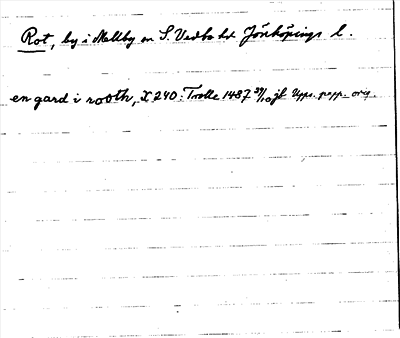 Rot, by i Mellby sn S. Vedbo hd Jönköpings l.
en gard i rooth, X 240: Trolle 1487 29/10 jf Upps. papp. orig.